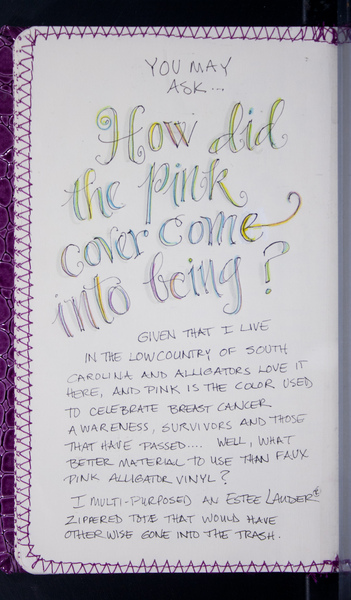 YOU MAY
ASK...
How did
the pink
cover come
into being?
GIVEN THAT I LIVE
IN THE LOWCOUNTRY OF SOUTH
CAROLINA AND ALLIGATORS LOVE IT
HERE, AND PINK IS THE COLOR USED
TO CELEBRATE BREAST CANCER
AWARENESS, SURVIVORS AND THOSE
THAT HAVE PASSED.... WELL, WHAT
BETTER MATERIAL TO USE THAN FAUX
PINK ALLIGATOR VINYL?
I MULTI-PURPOSED AN ESTEE LAUDER
ZIPPERED TOTE THAT WOULD HAVE
OTHERWISE GONE INTO THE TRASH.